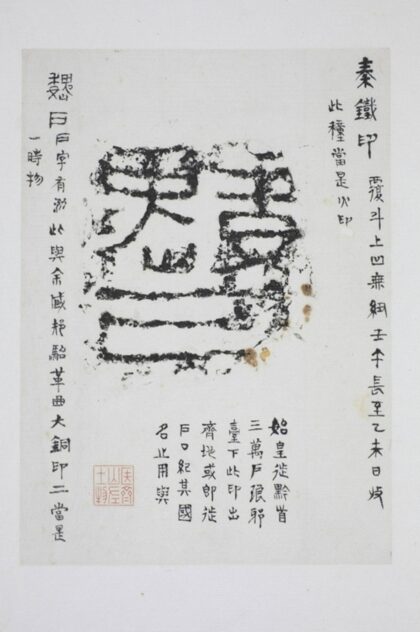 秦鐵印
覆斗上凹無紐壬午長至乙未日攷
此種當是火印
始皇徙黔首
三萬戶琅邪
臺下此印出
齊地或即徙
戶口紀其國
名止用與
魏戶戶字有泐此與余臧革西大銅印二當是
一時物